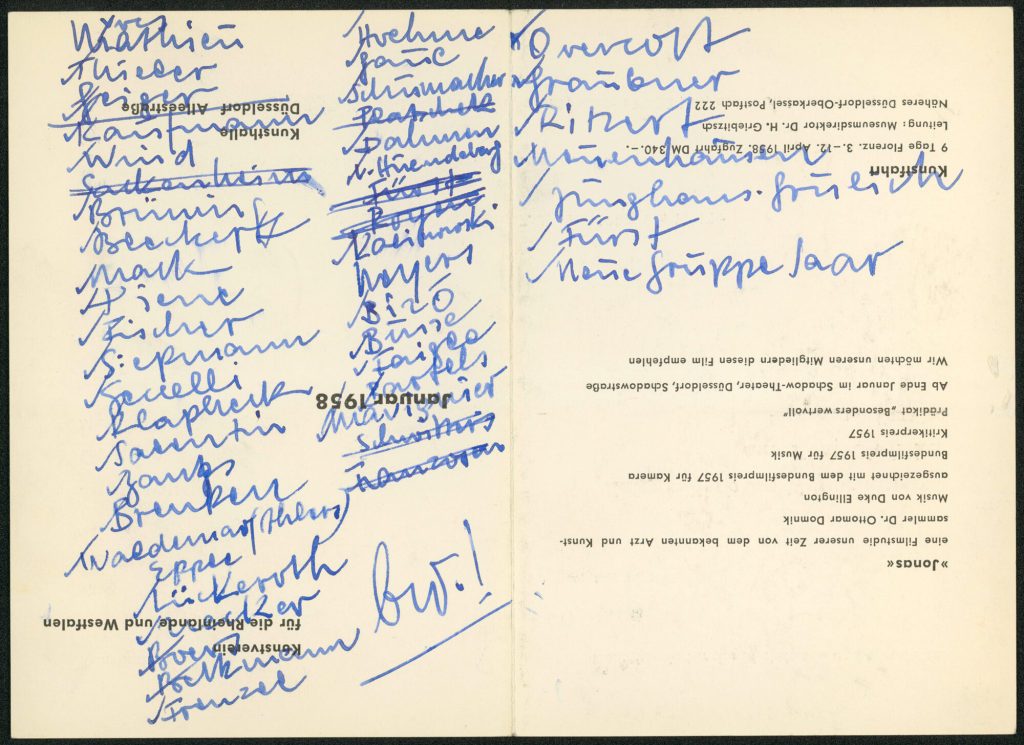 Yves
Mathieu
Thieler
Geiger
Kaufmann
Wind
Sackenheim
Brüning
Beckert
Mack
Piene
Fischer
Siepmann
Gecelli
Klapheck
Salentin
Zangs
Brenken
Waldemar (Ahlers)
Eppele
Lückeroth
Boers
Bockmann
Frenzel
Hoehme
Gaul
Schumacher
Platschek
Dahmen
Fürst
Royen
Kalinowski
Meyers
Biró
Busse
Faigle
Bartels
Mavignier
Schwitters
Franzosen
bw.!
Overcoft
Graubner
Ritzert
Meuenhausen
Junghans-Grulich
Fürst
Neue Gruppe Saar
»Jonas«
eine Filmstudie unserer Zeit von dem bekannten Arzt und Kunst-
sammler Dr. Ottomar Domnik
Musik von Duke Ellington
ausgezeichnet mit dem Bundesfilmpreis 1957 für Kamera
Bundesfilmpreis 1957 für Musik
Kritikerpreis 1957
Prädikat „Besonders wertvoll"
Ab Ende Januar im Schadow-Theater, Düsseldorf, Schadowstraße
Wir möchten unseren Mitgliedern diesen Film empfehlen
Kunstfahrt
9 Tage Florenz. 3.-12. April 1958. Zugfahrt DM 340,-.
Leitung: Museumsdirektor Dr. H. Griebitzsch
Näheres Düsseldorf-Oberkassel, Postfach 222
Kunstverein
für die Rheinlande und Westfalen
Januar 1958
Kunsthalle
Düsseldorf Alleestraße